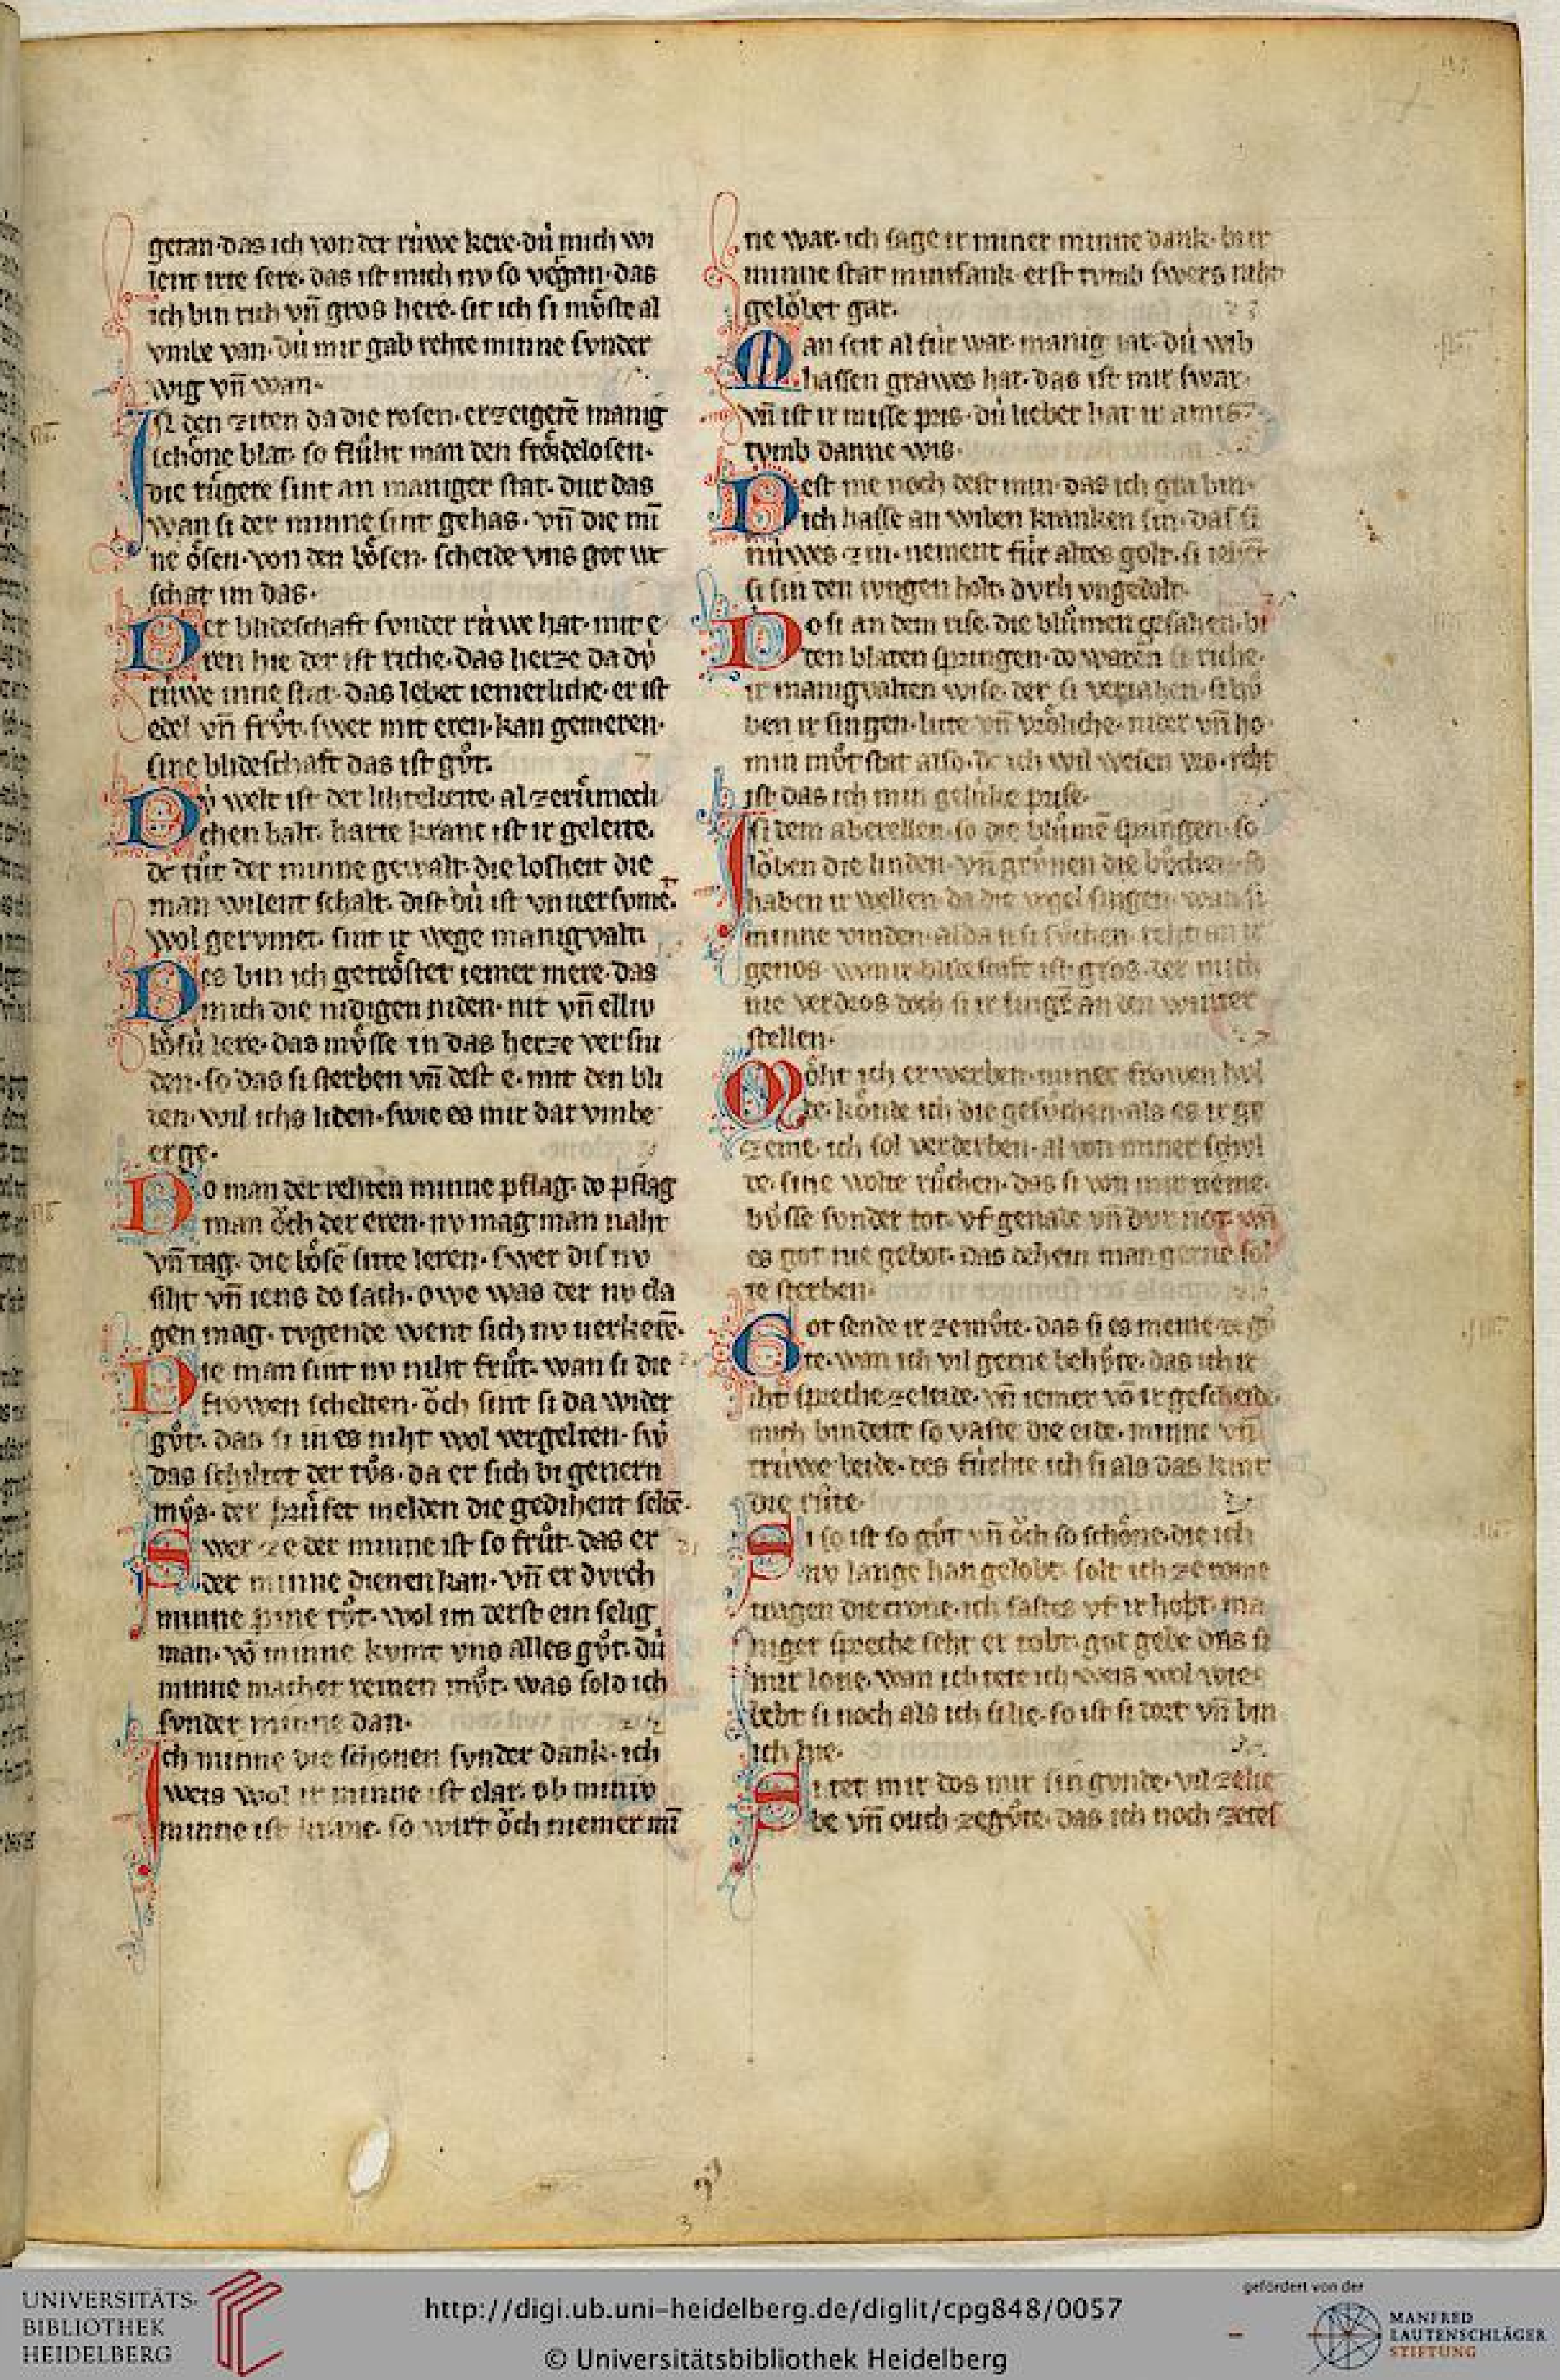 getan·das ich von der rúwe kere·dú mich wi
lent irte sere·das ist mich nv so vˀgan·das
ich bin rich vn̄ gros here·sit ich si mv̊ste al
vmbe van·dú mir gab rehte minne svnder
wig vn̄ wan·
IN den ziten da die rosen·erzeigetē manig
schöne blat·so flůht man den fröidelosen·
die růgere sint an maniger stat·dur das
wan si der minne sint gehas·vn̄ die mī
ne ösen·von den bösen·scheide vns got wc
schat im das·
Der blideschaft svnder rúwe hat·mit e
ren hie der ist riche·das herze da dv́
rúwe inne stat·das lebet iemerliche·er ist
edel vn̄ frv̊t·swer mit eren·kan gemeren·
sine blideschaft das ist gůt·
Dv́ welt ist der lihtekeite·al zerůmech
chen balt·harte kranc ist ir geleite·
dc tůt der minne gewalt·die losheit die
man wilent schalt·dist dú ist vnuersvmet·
wol gervmet·sint ir wege manigvalt·
Des bin ich getröstet iemer mere·das
mich die nidigen niden·nit vn̄ elliv
bösú lere·das mv̊sse in das herze versni
den·so das si sterben vn̄ dest e·mit den bli
den·wil ichs liden·swie es mir dar vmbe
erge·
Do man der rehten minne pflag·do pflag
man öch der eren·nv mag man naht
vn̄ tag·die bösē sitte leren·swer dis nv
siht vn̄ iens do sach·owe was der nv cla
gen mag·tvgende went sich nv uerkerē·
Die man sint nv niht frůt·wan si die
frowen schelten·öch sint si da wider
gůt·das si in es niht wol vergelten·swˀ
das schiltet der tv̊s·da er sich bi genern
mv̊s·der průfet melden die gedihent seltē·
Swer ze der minne ist so frůt·das er
der minne dienen kan·vn̄ er dvrch
minne pine tv̊t·wol im derst ein selig
man·vō minne kvmt vns alles gv̊t·dú
minne machet reinen mv̊t·was sold ich
svnder minne dan·
Ich minne die schonen svnder dank·ich
weis wol ir minne ist clar·ob miniv
minne ist kranc·so wirt öch niemer mī
ne war·ich sage ir miner minne dank·bi ir
minne stat minsank·er st tvmb swers niht
gelöbet gar·
Man seit al fúr war·manig iar·dú wib
hassen grawes har·das ist mir swar·
vn̄ ist ir misse pris·dú lieber hat ir amis·
tvmb danne wis·
Dest me noch dest min·das ich gra bin·
ich hasse an wiben kranken sin·das si
núwes zin·nement fúr altes golt·si iehent
si sin den iungen holt·dvrh vngedolt·
Do si an dem rise·die blůmen gesahen·bi
den blaten springen·do waren si riche·
ir manigvalten wise·der si veriahen·si hv
ben ir singen·lute vn̄ vröliche·nider vn̄ ho
min můt stat also·dc ich wil wesen vro·reht
ist das ich min gelúke prise·
IN dem aberellen·so die blůmē springen·so
löben die linden·vn̄ grůnen die bůchen·so
haben ir wellen·da die vogel singen·wan si
minne vinden·alda si si sůchen·reht an ir
genos·wan ir blideschaft ist gros·der mich
nie verdros·doch si ir singē an den winter
stellen·
Möht ich erwerben·miner frowen hvl
de·könde ich die gesůchen·als es ir ge
zeme·ich sol verderben·al von miner schvl
de·sine wolte růchen·das si von mir neme·
bůsse svnder tot·vf genade vn̄ dvr not·wan
es got nie gebot·das dehein man gerne sol
te sterben·
Got sende ir zemůte·das si es meine ze gů
te·wan ich vil gerne behv̊te·das ich ir
iht spreche zeleide·vn̄ iemer vō ir gescheide·
mich bindent so vaste die eide·minne vn̄
trúwe beide·des fúrhte ich si als das kint
die růte·
Si so ist so gůt vn̄ öch so schöne·die ich
nv lange han gelobt·solt ich ze rome
tragen die crone·ich saste vf ir hopt·ma
niger spreche seht er tobt·got gebe das si
mir lone·wan ich tete ich weis wol wie·
lebt si noch als ich si lie·so ist si dort vn̄ bin
ich hie·
Si tet mir dos mir sin gvnde·vil zelie
be vn̄ ouch zegůte·das ich noch zetes
UNIVERSITÄTS-
BIBLIOTHEK
HEIDELBERG
http://digi.ub.uni-heidelberg.de/diglit/cpg848/0057
© Universitätsbibliothek Heidelberg
gefördert von der
MANFRED
LAUTENSCHLÄGER
STIFTUNG